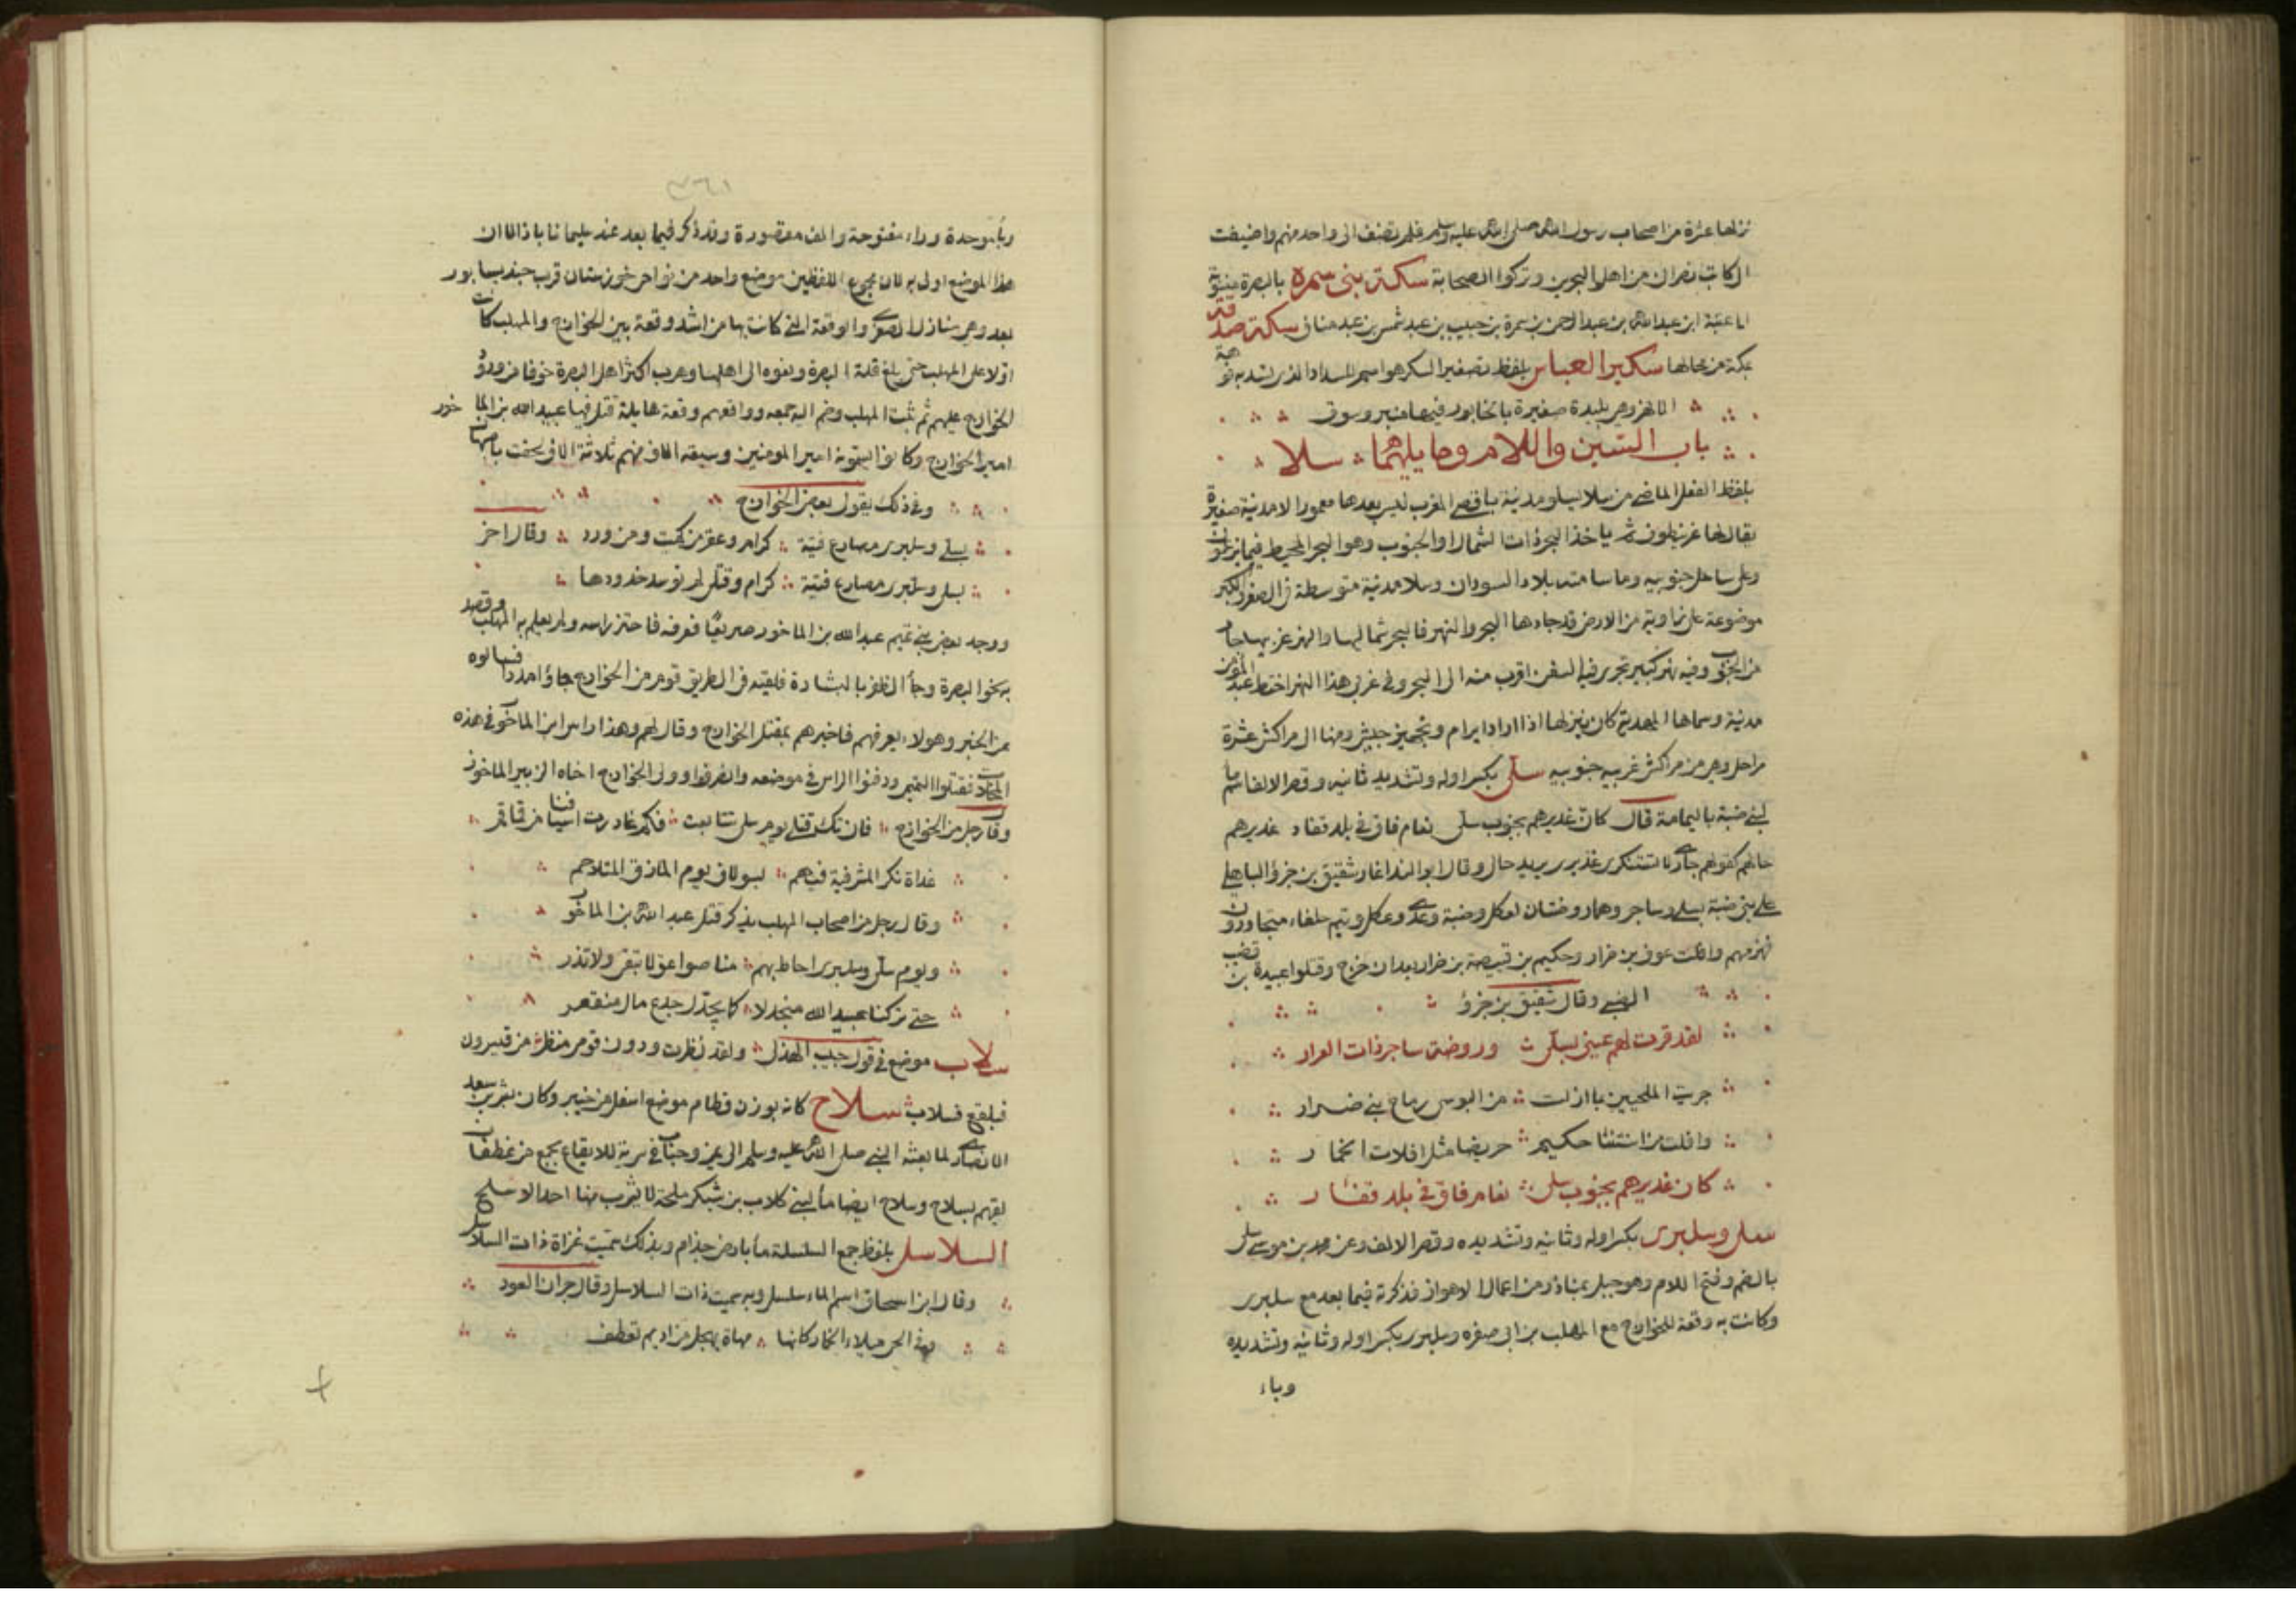 نزلها عشرة من اصحاب رسول الله صلى الله عليه وسلم فلم تضف الى واحد منهم واضيفت
الى كاتب نصرانى من اهل البحرين وتركوا الصحابة سكة بنى سمره بالبصرة منسوبة
الى عتبة ابن عبد الله بن عبد الرحمن بن سمرة بن حبيب بن عبد شمس بن عبد مناف سكة صدقة
بمكة من محالها سكير العباس بلفظ تصغير السكر هو اسم للسداد الذى تسد به فوهة
الانهر وهى بليدة صغيرة بالخابور فيها منبر وسوق
باب السين واللام وما يليهما سلا
بلفظ الفعل الماضى من سلا يسلو مدينة باقصى المغرب ليس بعدها معمور الا مدينة صغيرة
يقال لها غرنيطوف ثم ياخذ البحر ذات الشمال او الجنوب وهو البحر المحيط فيما يزعمون
وعلى ساحل جنوبيه وما سامته بلاد السودان وسلا مدينة متوسطة فى الصغر والكبر
موضوعة على زاوية من الارض قد جاءها البحر والنهر فالبحر شماليها والنهر غربيها جار
من الجنوب وفيه نهر كبير تجرى فيه السفن اقرب منه الى البحر وفى غربى هذا النهر اختط عبد المومن
مدينة وسماها المهدية كان ينزلها اذا اراد ابرام وتجهيز جيش ومنها الى مراكش عشرة
مراحل وهى من مراكش غربيه جنوبيه سلى بكسر اوله وتشديد ثانيه وقصر الالف اسم ما
لبنى ضبة باليمامة قال كان غديرهم بجنوب سلى نعام قاق فى بلد قفار غديرهم
حالهم كقولهم جارى لا تستنكرى غديرى يريد حالى وقال ابو الندا اغار شقيق بن جزؤ الباهلى
على بنى ضبة بسلى وساجر وهما روضتان لعكل وضبة وعدى وعكل وتيم حلفاء متجاورون
فهزمهم وافلت عوف بن ضرار وحكيم بن قبيصة بن ضرار بعد ان جرح وقتلوا عبيدة بن قضيب
الضبى وقال شقيق بن جزؤ
لقد قرت لهم عينى بسلى وروضة ساجر ذات العرار
جزيت الملجيين بما ازلت من البوس رماح بنى ضرار
وافلت من اسنتنا حكيم جريضا مثل افلات الحمار
كان غديرهم بجنوب سلى نعام قاق فى بلد قفار
سلى وسلبرى بكسر اوله وثانيه وتشديده وقصر الالف وعن محمد بن موسى سلى
بالضم وفتح اللام وهو جبل بمناذر من اعمال الاهواز فذكرته فيما بعد مع سلبرى
وكانت به وقعة للخوارج مع المهلب بن ابى صفره وسلبرى بكسر اوله وثانيه وتشديده
وباء
٣٦١
وباء موحدة وراء مفتوحة والف مقصورة وقد ذكر فيما بعد عند سليمانا باذ الا ان
هذا الموضع اولى به لان مجموع اللفظين موضع واحد من نواحى خوزستان قرب جنديسابور
بعد وهى مناذر الصغرى والوقعة التى كانت بها من اشد وقعة بين الخوارج والمهلب كانت
اولا على المهلب حتى بلغ فله البصرة ونعوه الى اهلها وهرب اكثر اهل البصرة خوفا من ورود
الخوارج عليهم ثم ثبت المهلب وضم اليه جمعه وواقعهم وقعة هايلة قتل فيها عبيد الله بن الماخور
امير الخوارج وكانوا يسمونه امير المومنين وسبعة الاف منهم ثلاثة الاف لحقت باصبهان
وفى ذلك يقول بعض الخوارج
بسلى وسلبرى مصارع فتية كرام وعقر من كمت ومن ورد وقال اخر
بسلى وسلبرى مصارع فتية كرام وقتلى لم توسد خدودها
ووجد بعض بنى تميم عبد الله بن الماخور صريعا فعرفه فاحتز راسه ولم يعلم به المهلب وقصد
به نحو البصرة وجاء الظفر بالبشارة فلقيته فى الطريق قوم من الخوارج جاؤا مددا فسالوه
عن الخبر وهو لا يعرفهم فاخبرهم بمقتل الخوارج وقال لهم وهذا راس ابن الماخور فى هذه
المخلاة فقتلوا التميمى ودفنوا الراس فى موضعه وانصرفوا وولى الخوارج اخاه الزبير الماخور
وقال رجل من الخوارج فان تك قتلى يوم سلى تتابعت فكم غادرت اسيافنا من قماقم
غداة نكر المشرفية فيهم بسولاف يوم المازق المتلاحم
وقال رجل من اصحاب المهلب يذكر قتل عبد الله بن الماخور
ويوم سلى وسلبرى احاط بهم منا صواعق لا تبقى ولا تذر
حتى تركنا عبيد الله منجدلا كما تجدل جذع مال منقعر
سلاب موضع فى قول حبيب الهذلى ولقد نظرت ودون قومى منظر من قيسرون
فبلقع فسلاب سلاح كانه بوزن قطام موضع اسفل من خيبر وكان بشر بن سعد
الانصارى لما بعثه النبى صلى الله عليه وسلم الى يمن وجبار فى سرية للايقاع بجمع من غطفان
لقيهم بسلاح وسلاح ايضا ماء لبنى كلاب بن شبكر ملحة لا يشرب منها احد الا سلح
السلاسل بلفظ جمع السلسلة ماء بارض جذام وبذلك سميت غزاة ذات السلاسل
وقال ابن اسحاق اسم الماء سلسل وبه سميت ذات السلاسل وقال جران العود
وفى الحى ميلاء الخمار كانها مهاة بهجل من اديم تعطف